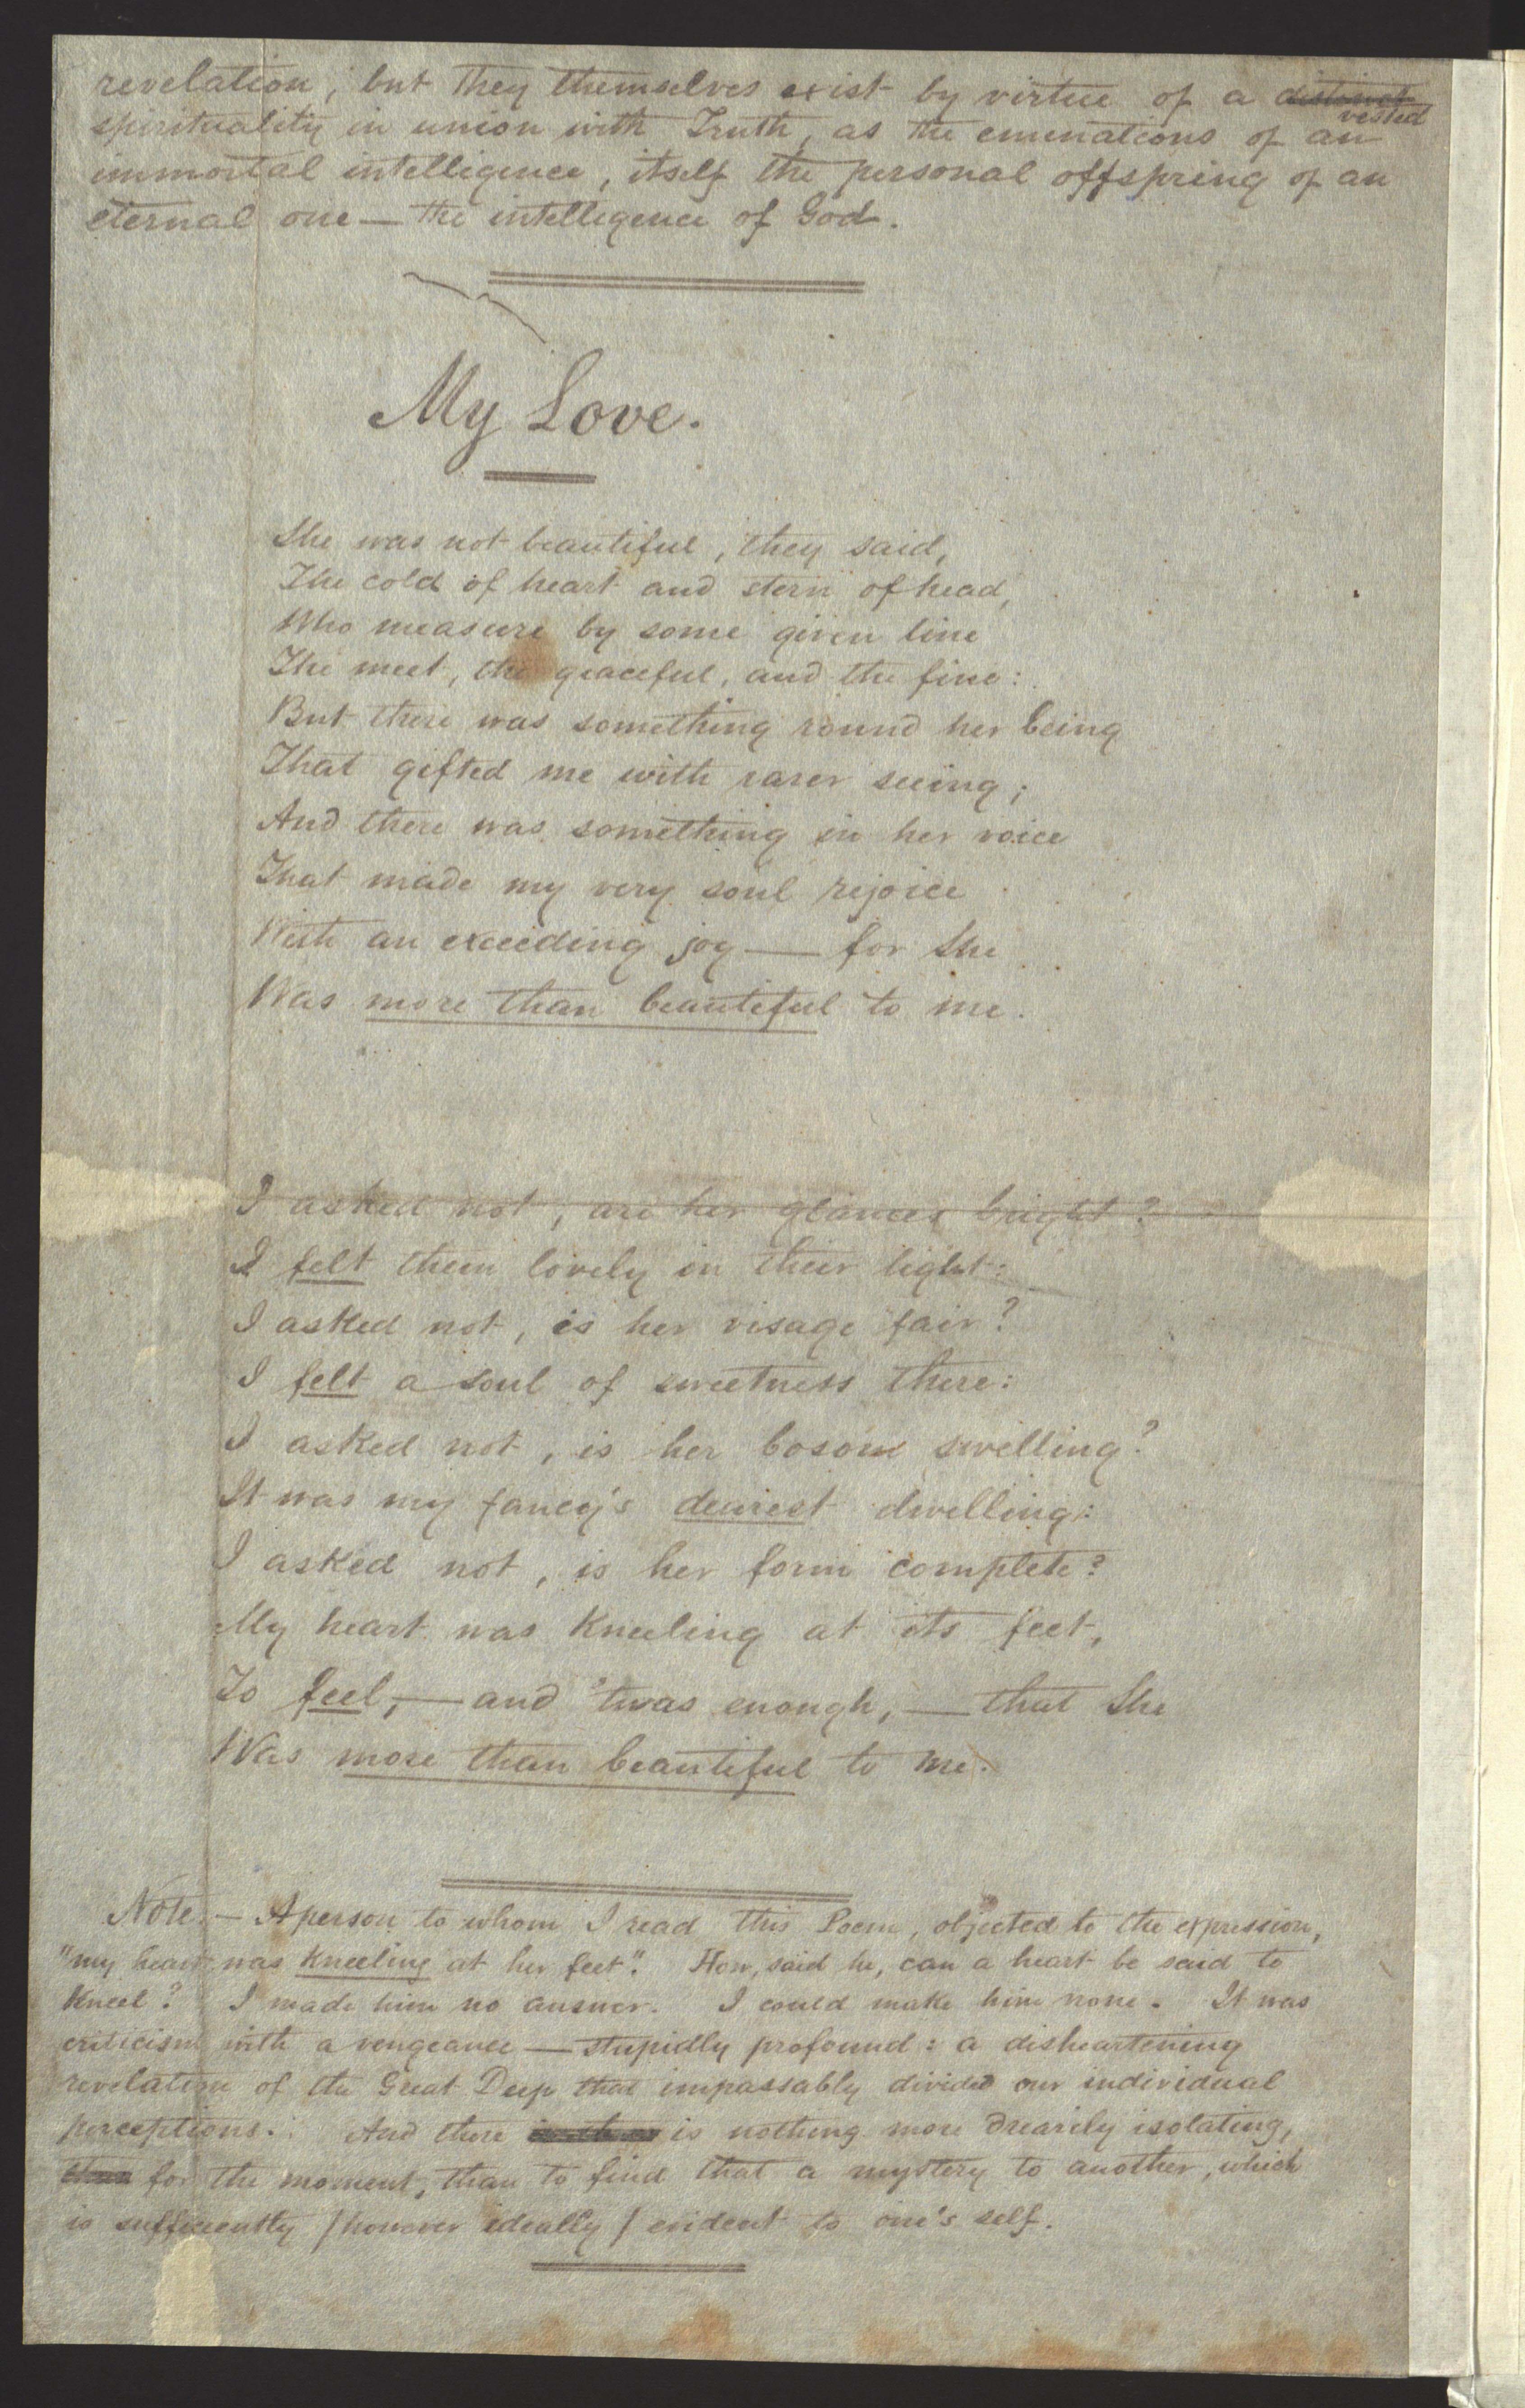 revelation, but they themselves exist by virtue of a distinct vested
spirituality in union with Truth, as the emenations of an
immortal intelligence, itself the personal offspring of an
eternal one — the intelligence of God.
My Love.
She was not beautiful, they said,
The cold of heart and stern of head,
Who measure by some given line
The meet, the graceful, and the fine:
But there was something round her being
That gifted me with rarer seeing;
And there was something in her voice
That made my very soul rejoice
With an exceeding joy — for She
Was more than beautiful to me.
I asked not, are her glances bright?
I felt them lovely in their light:
I asked not, is her visage fair?
I felt a soul of sweetness there:
I asked not, is her bosom swelling?
It was my fancy's dearest dwelling:
I asked not, is her form complete?
My heart was kneeling at its feet,
To feel, — and 'twas enough, — that She
Was more than beautiful to me.
Note. — A person to whom I read this Poem, objected to the expression,
"my heart was kneeling at her feet". How, said he, can a heart be said to
kneel? I made him no answer. I could make him none. It was
criticism with a vengeance — stupidly profound: a disheartening
revelation of the Great Deep that impassably divided our individual
perceptions. And there is nothing more drearily isolating,
for the moment, than to find that a mystery to another, which
is sufficiently / however ideally / evident to one's self.